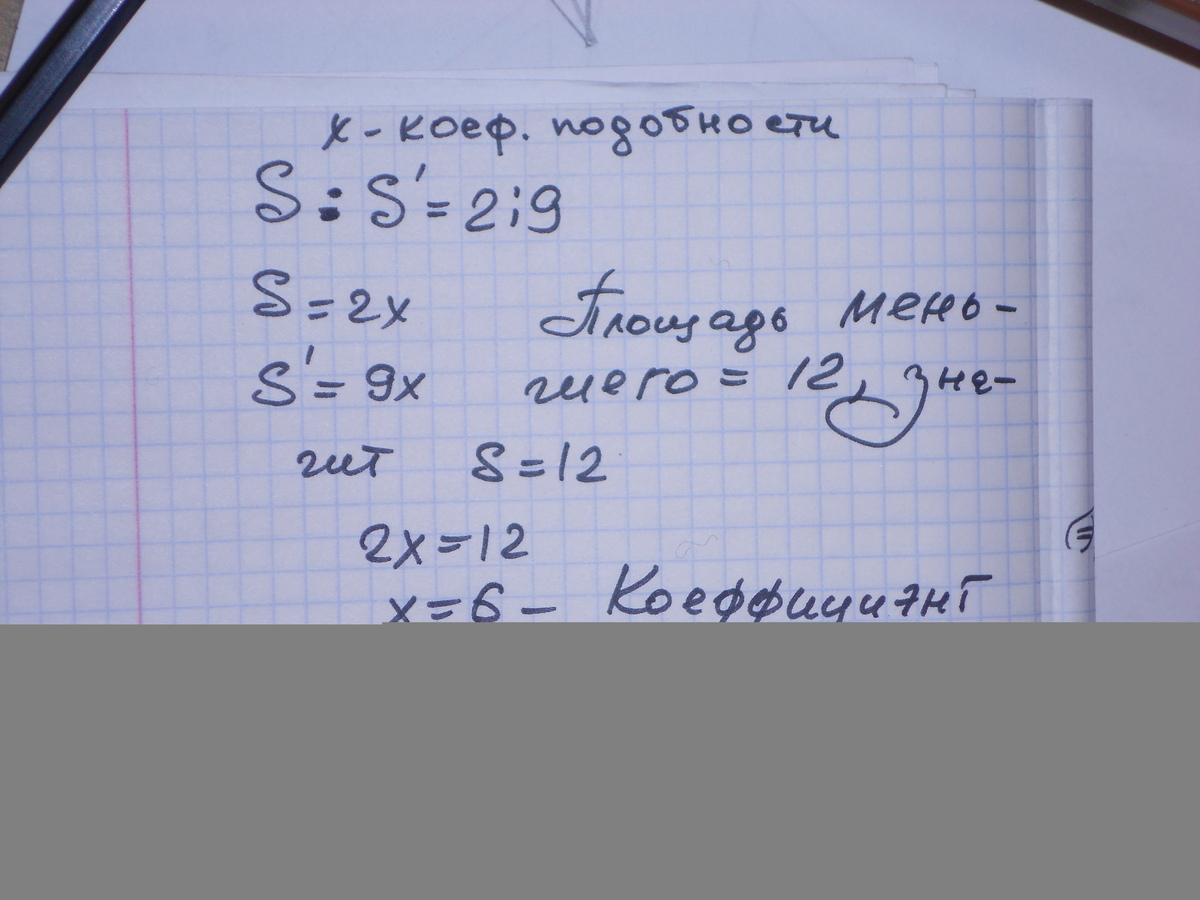 х - коеф. подобности
S : S' = 2 ; 9
S = 2x Площадь мень-
S' = 9x шего = 12, зна-
чит S = 12
2x = 12
x = 6 - Коеффициэнт